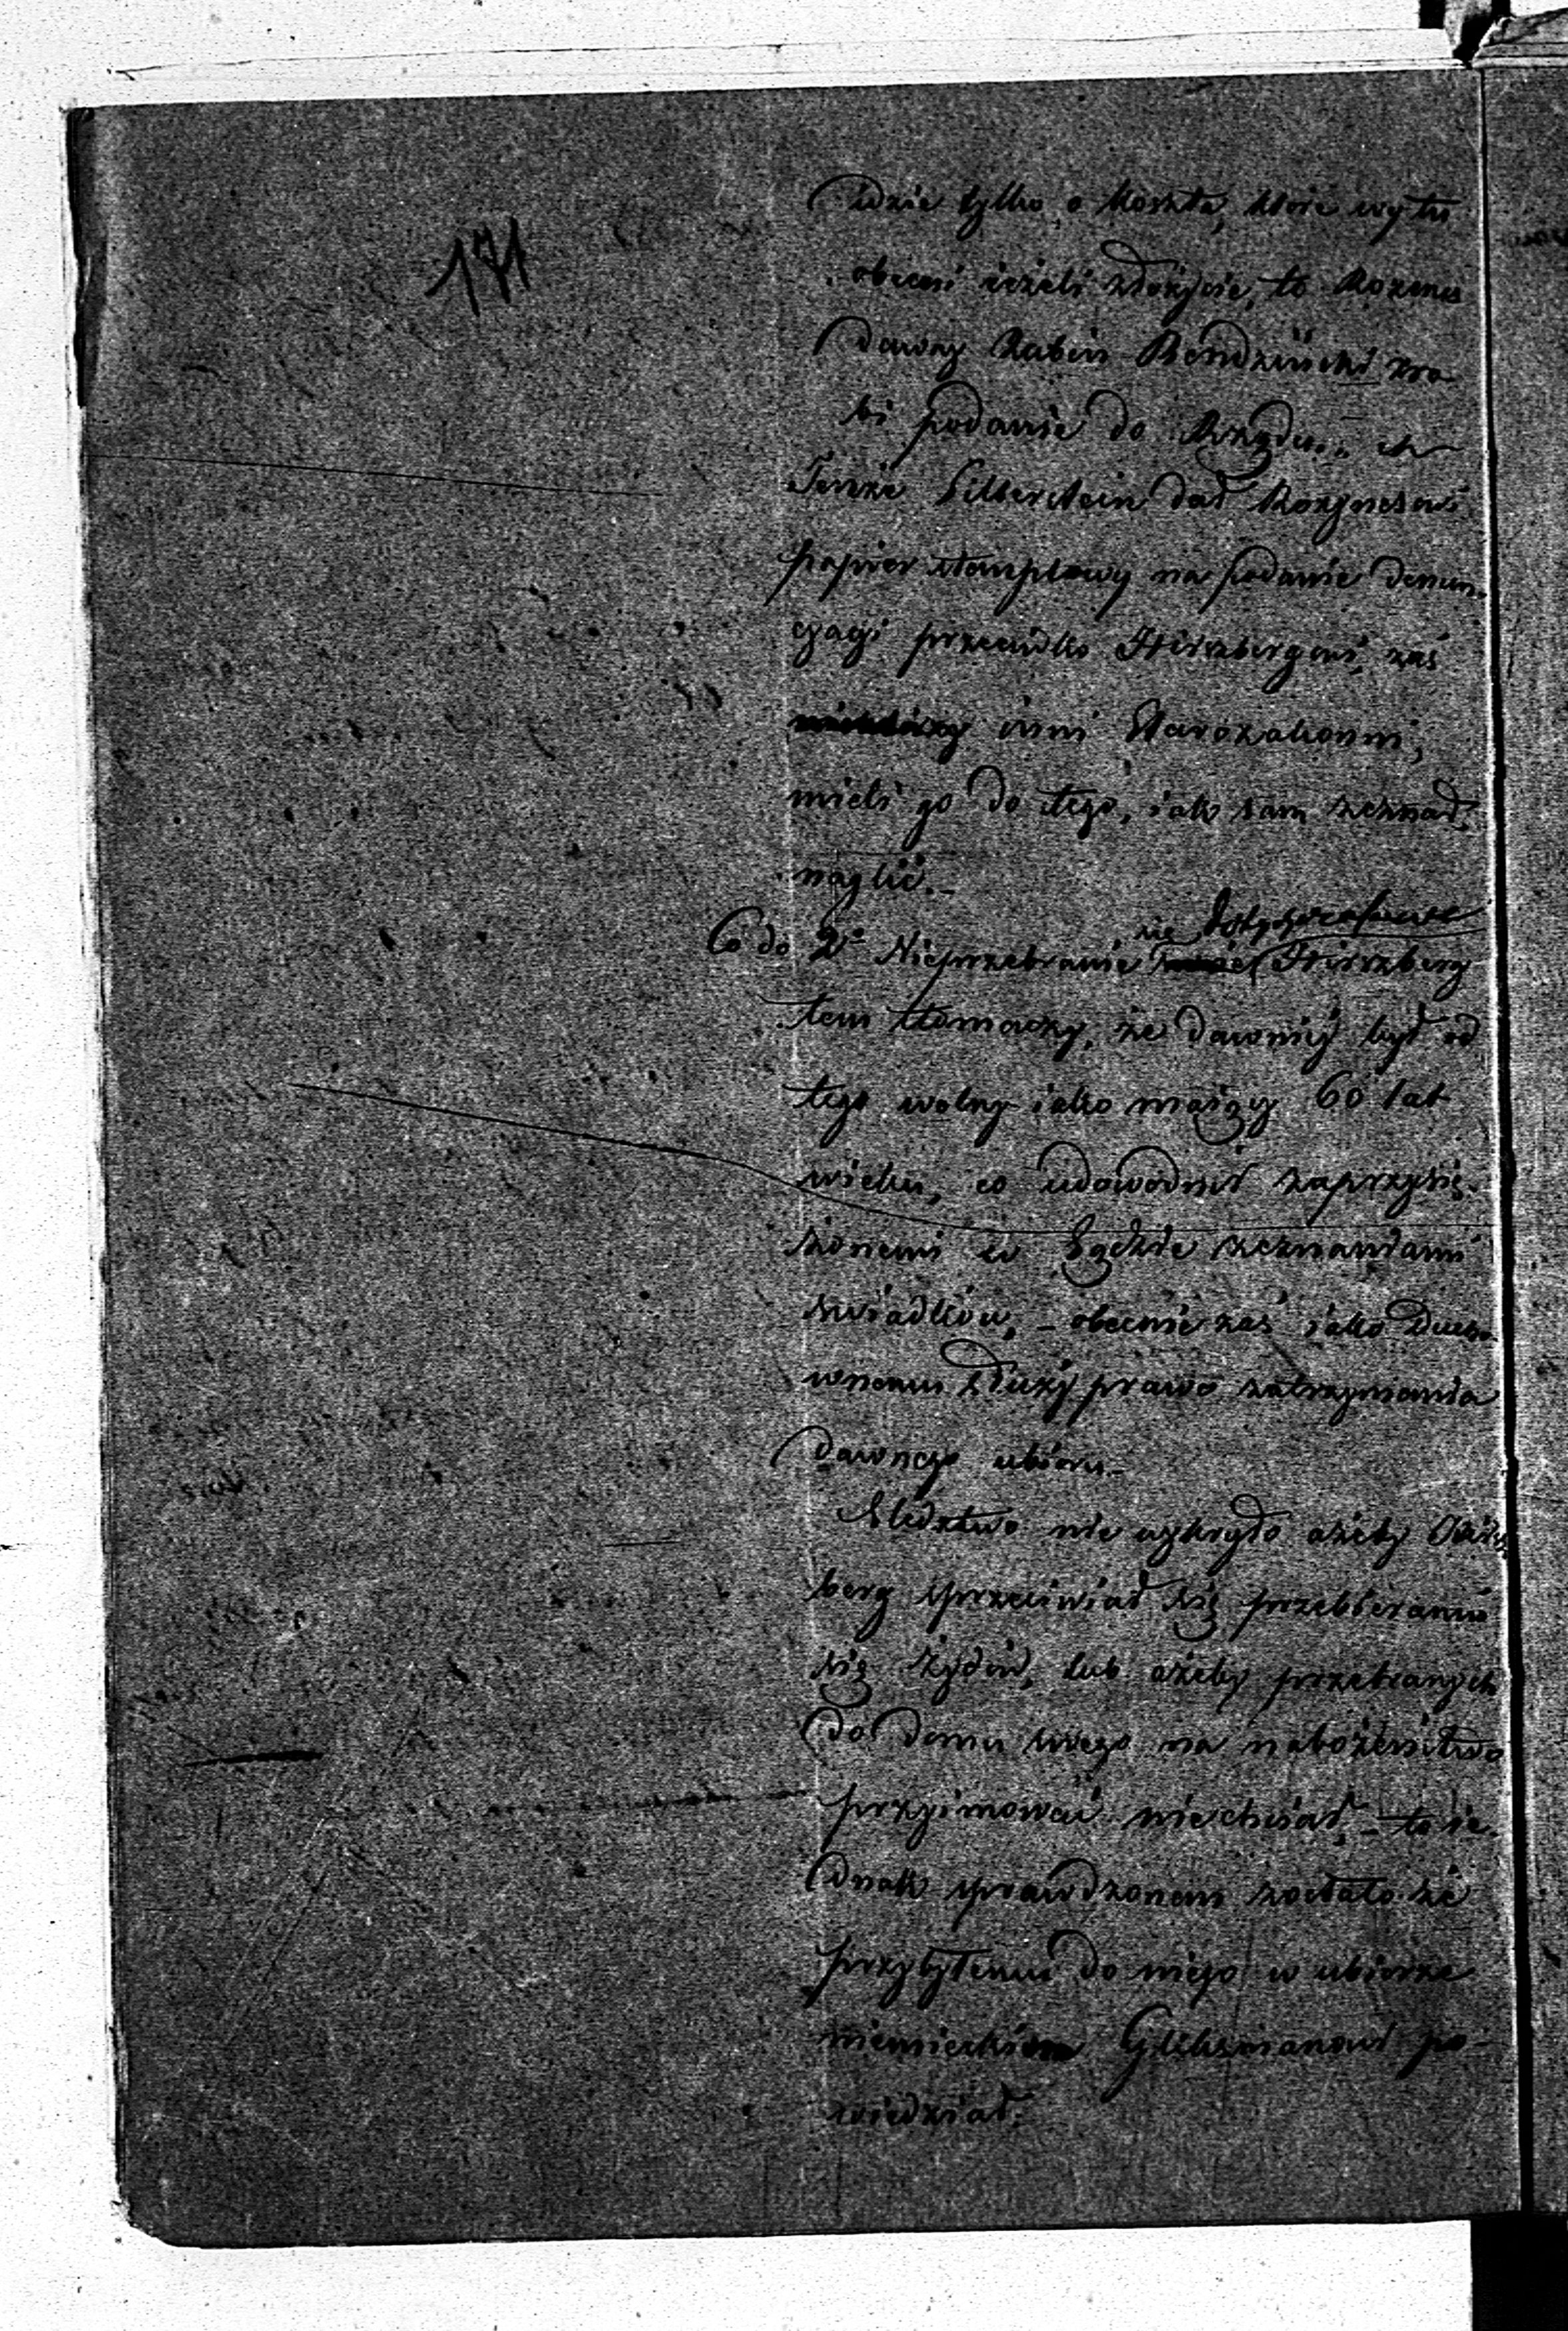 171
idzie tylko o koszta, które wy tu
obecni ieżeli złożycie, to Rozynes
dawny Rabin Bendzinski zro
bi podanie do Rządu.
Tenże Silberstein dał Rozynesowi
papier stemplowy na podanie denun
cyacyi przeciwko Hirszbergowi, zaś
inni Starozakonni,
mieli go do tego, iak sam zeznał,
naglić.
Co do 2º Nieprzebranie się dotychczasowe Hirszberg
tem tłomaczy, że dawniey był od
tego wolny iako maiący 60 lat
wieku, co udowodnił zaprzysię
żonemi w Sądzie zeznaniami
świadków, – obecnie zaś iako Ducho
wnemu służy prawo zatrzymania
dawnego ubioru.
Sledztwo nie wykryło ażeby
berg sprzeciwiał się przebieraniu
się żydów, lub ażeby przebranych
do domu swego na nabożeństwo
przyimować nie chciał, – to ie
dnak sprawdzonem zostało że
przybyłemu do niego w ubiorze
niemieckiem Gliksmanowi po
wiedział: